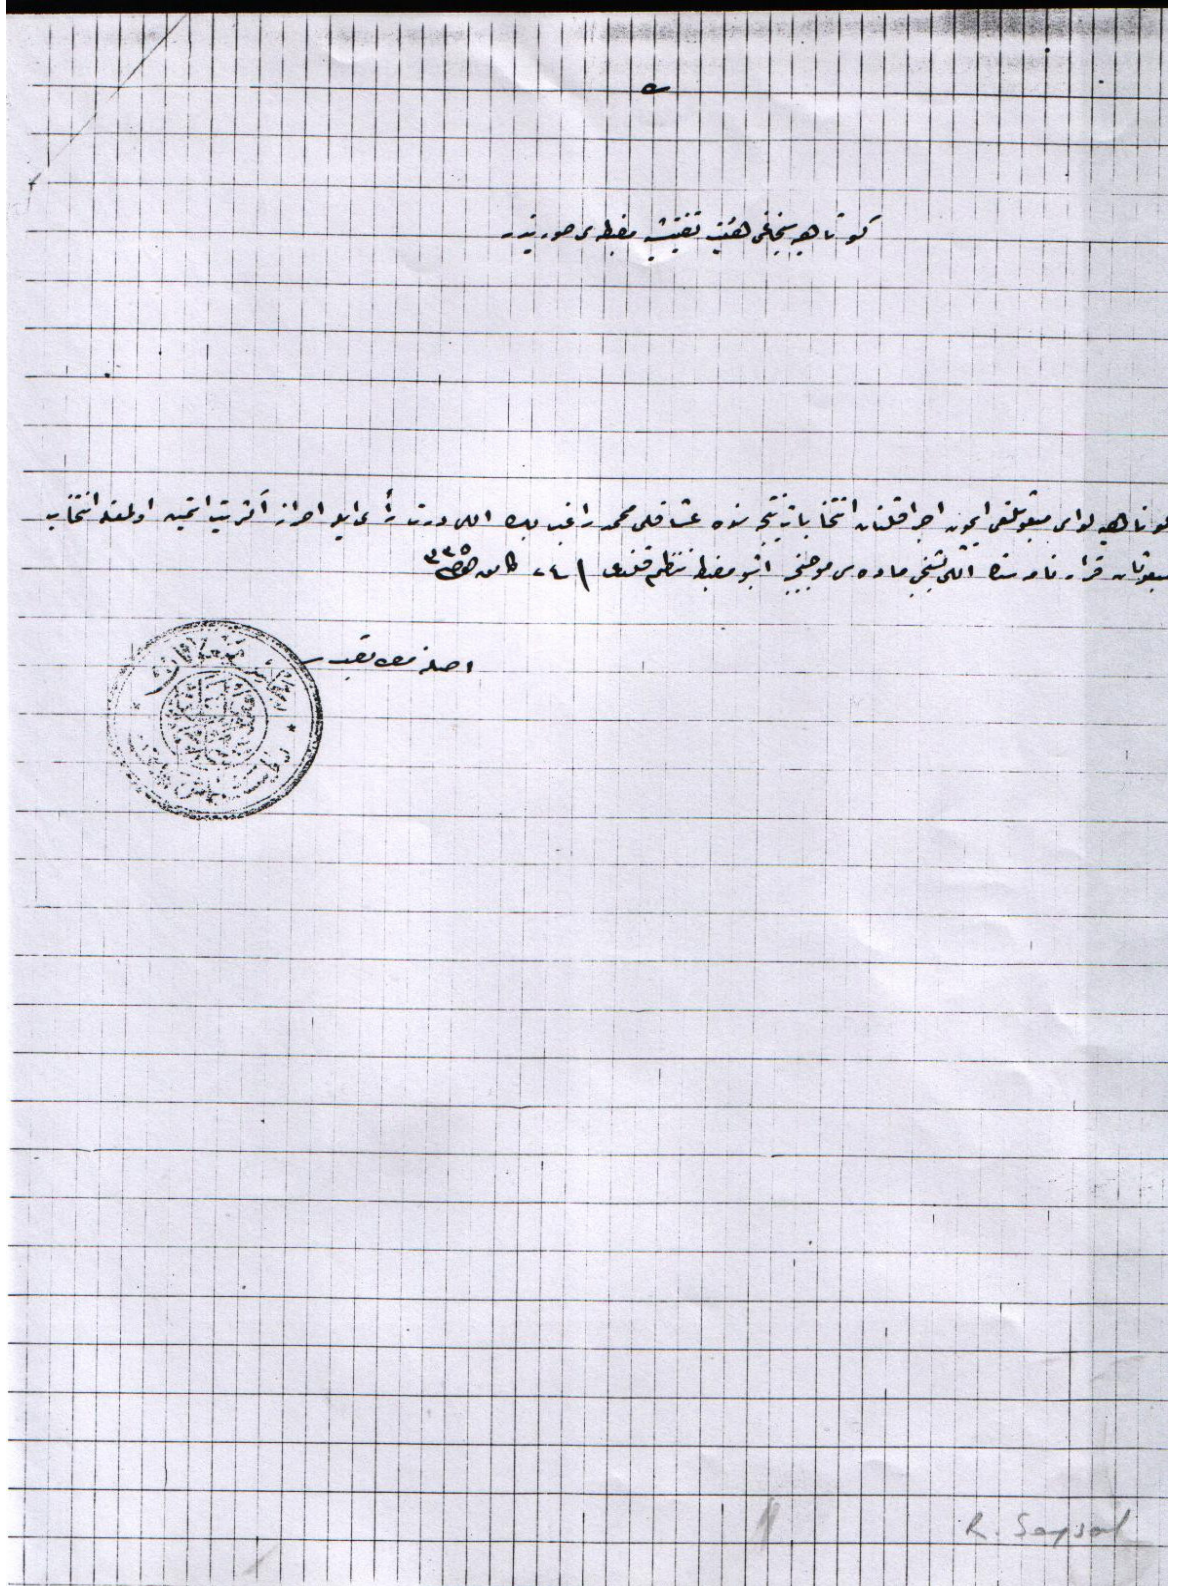 كوتاهيه سنجاغی هيئت تفتيشيه مضبطه سی صورتيدر
كوتاهيه لواسی مبعوثلغی ایچون اجرا قلنان انتخابات نتیجه سنده عشاقلی محمد راغب بك اللی درت رأی ایله احراز اکثریت ایتمیش اولمغله انتخاب
مبعوثان قرارنامه سنك اللی بشنجی ماده سی موجبنجه اشبو مضبطه تنظیم قلندی كانون ٣٣٥
اصلنه مطابقدر
R. Saysal